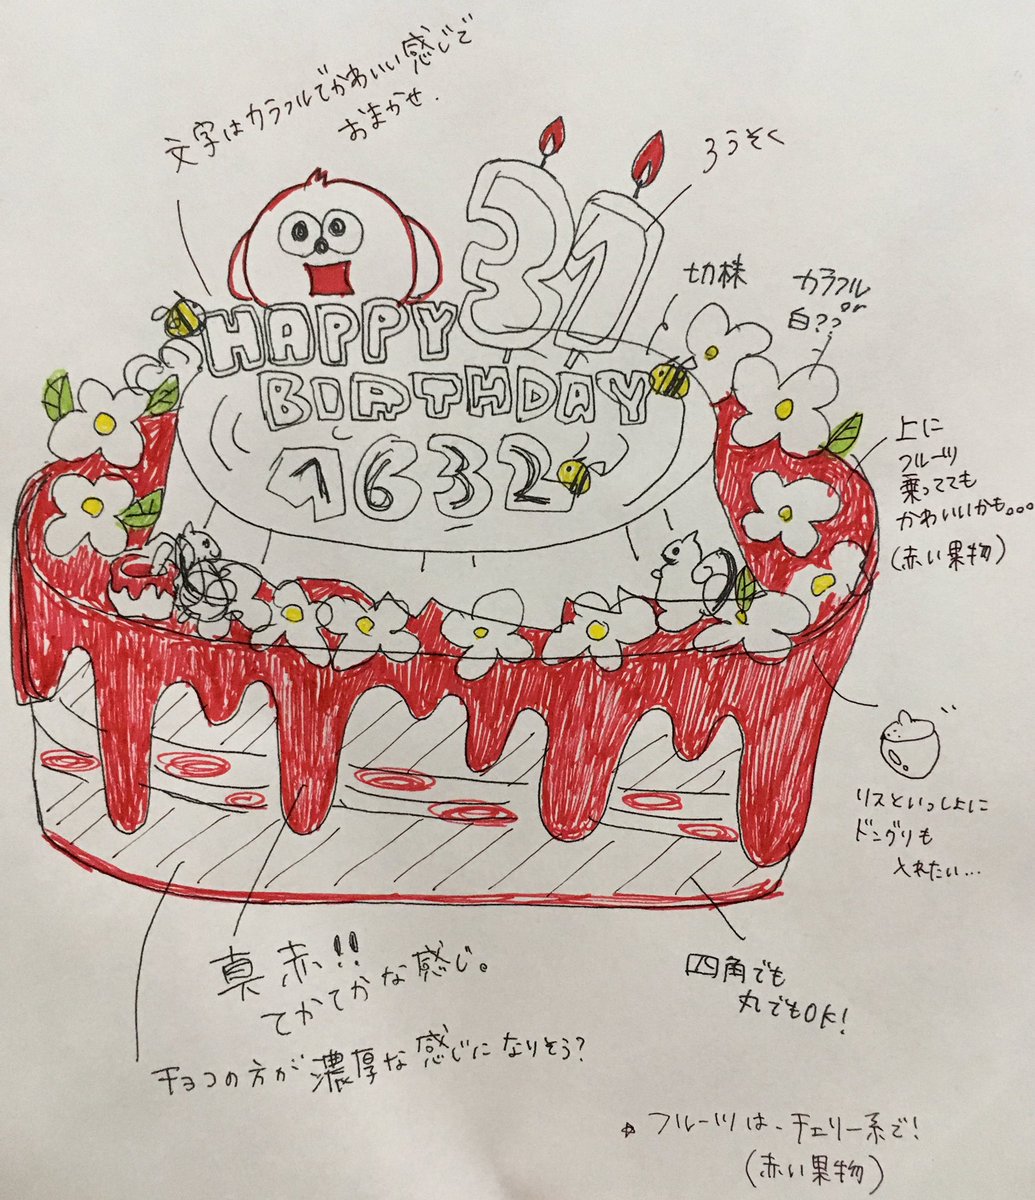 文字はカラフルでかわいい感じで
おまかせ.
ろうそく
31
切株
カラフル
or
白??
HAPPY
BIRTHDAY
1632
上に
フルーツ
乗ってても
かわいいかも。。。
(赤い果物)
リスといっしょに
ドングリも
入れたい...
真赤!!
てかてかな感じ。
四角でも
丸でもOK!
チョコの方が濃厚な感じになりそう?
フルーツは、チェリー系で!
(赤い果物)